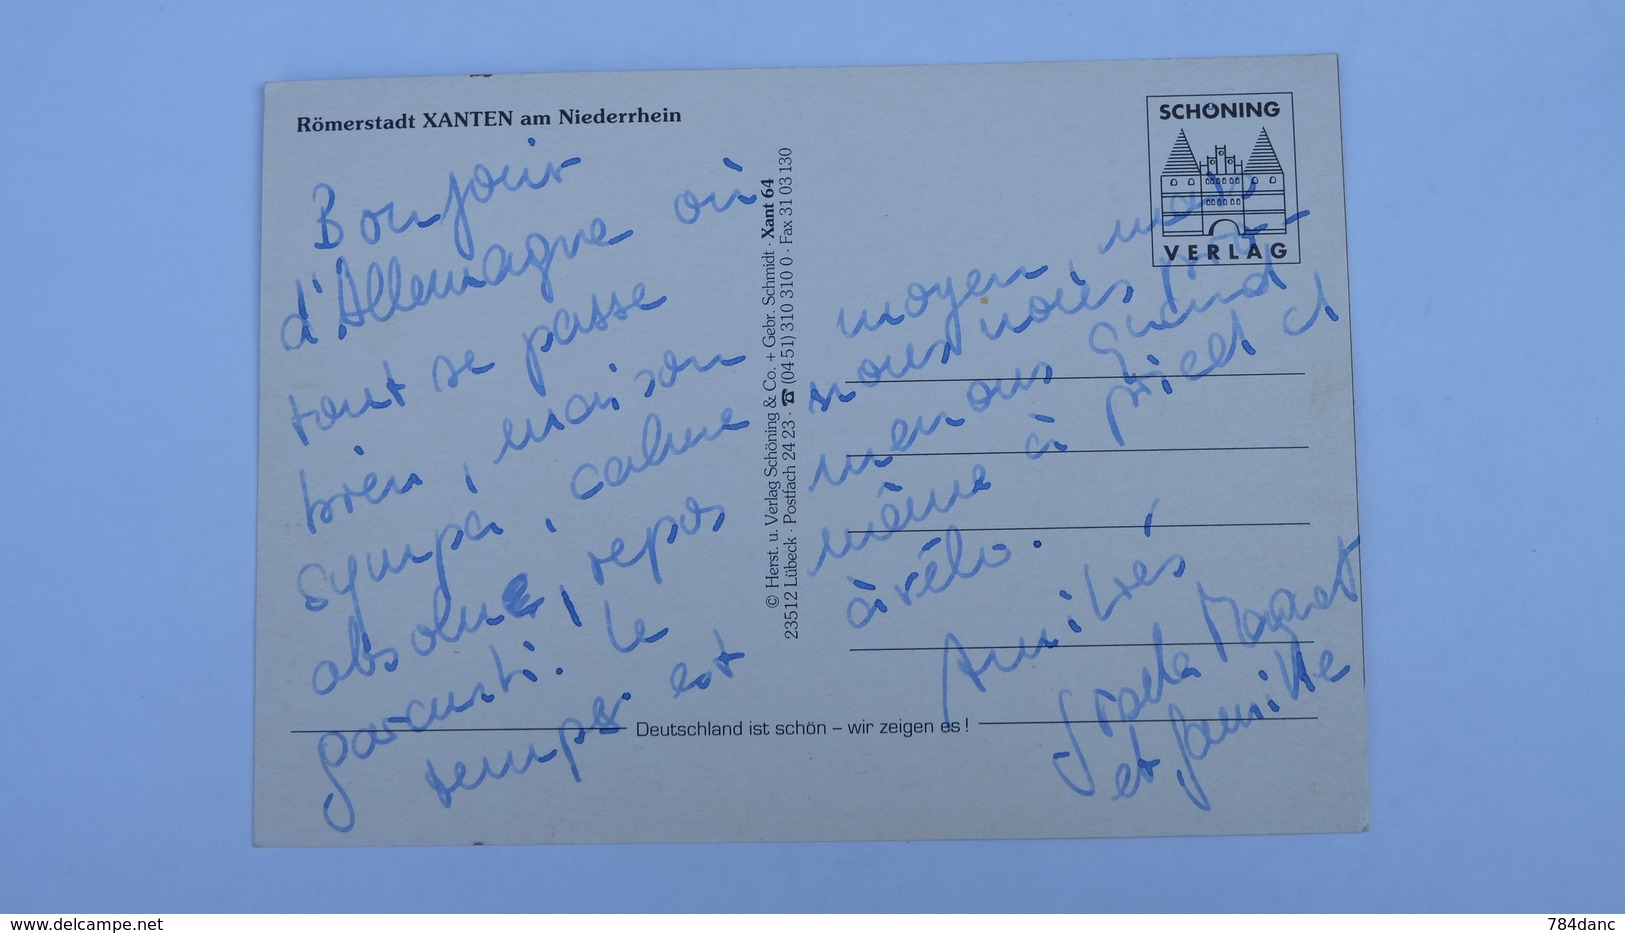 Römerstadt XANTEN am Niederrhein
Bonjour
d'Allemagne où
tout se passe
bien, maison
sympa, calme
absolue, repos
garanti. Le
temps est
SCHÖNING
VERLAG
© Herst. u. Verlag Schöning & Co. + Gebr. Schmidt · Xant 64
23512 Lübeck · Postfach 24 23 · ☎ (04 51) 310 310 0 · Fax 31 03 130
moyen, mais
nous nous
menons quand
même à pied et
à vélo.
Amitiés
Magnot
et famille
Deutschland ist schön – wir zeigen es !
www.delcampe.net
784danc